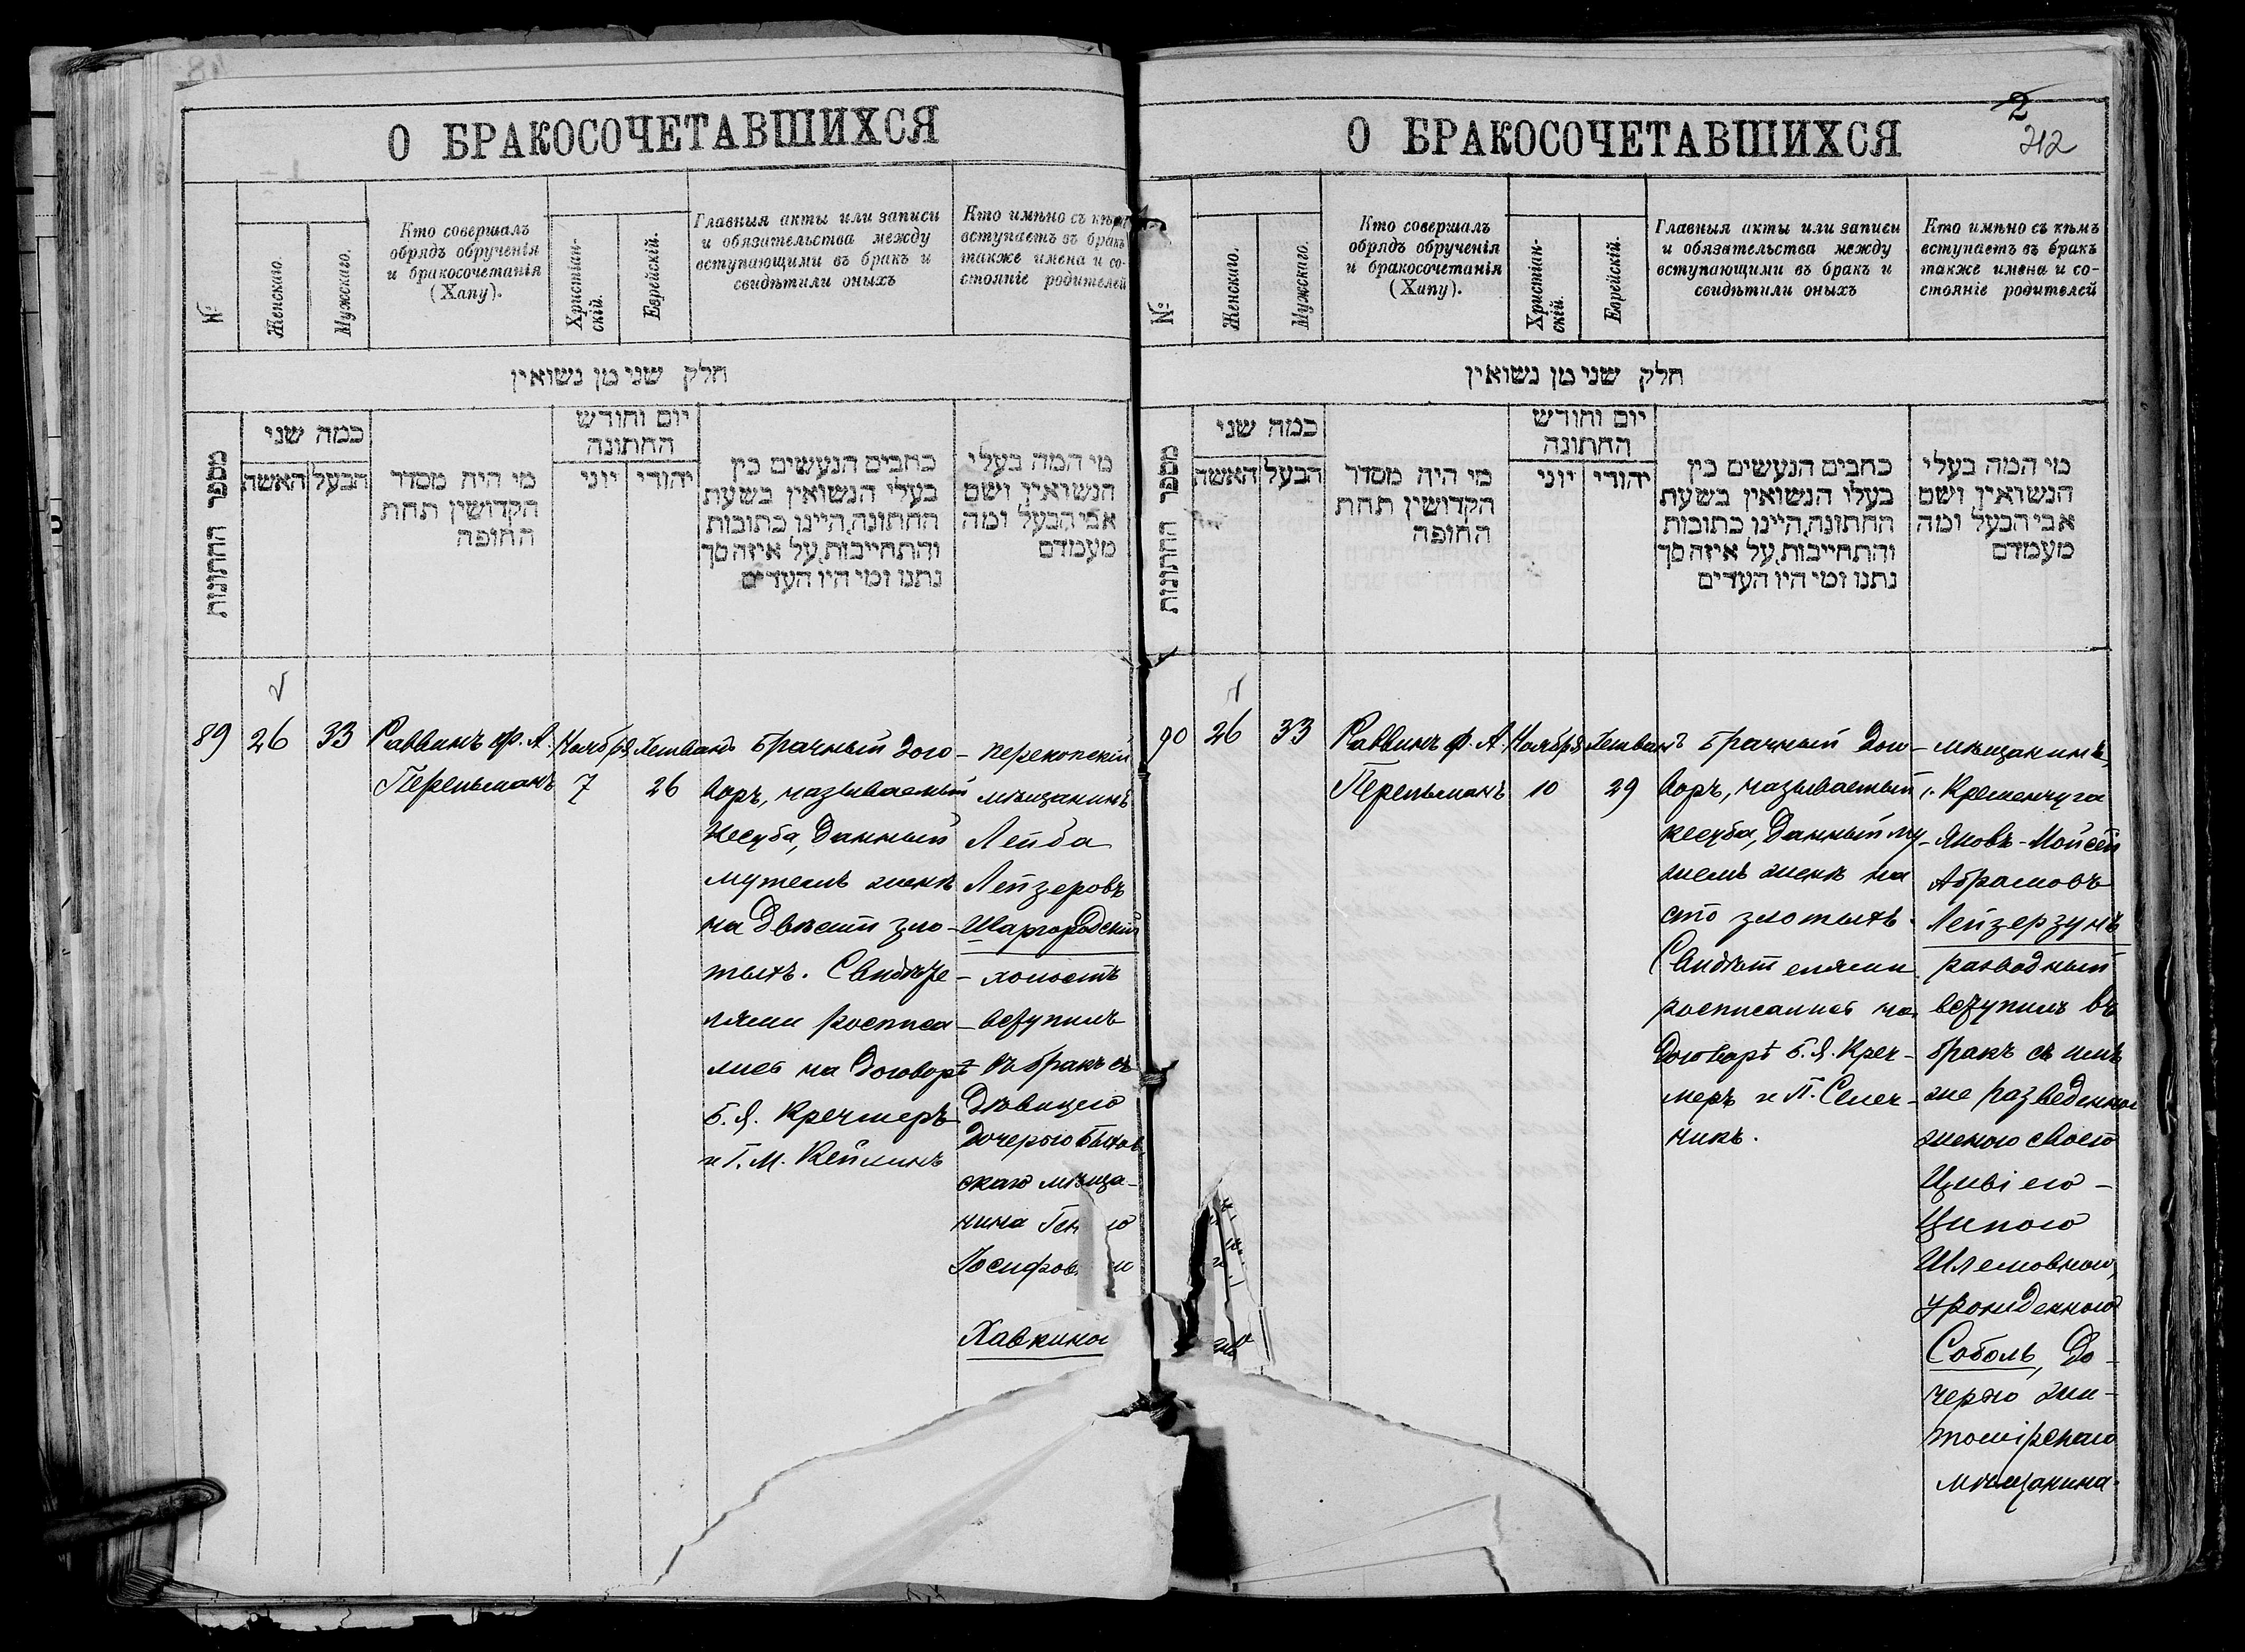 О БРАКОСОЧЕТАВШИХСЯ
№
Женскаго.
Мужскаго.
Кто совершалъ
обрядъ обрученія
и бракосочетанія
(Хапу).
Христіан-
скій.
Еврейскій.
Главныя акты или записи
и обязательства между
вступающими въ бракъ и
свидѣтили оныхъ
Кто имѣно съ кѣмъ
вступаетъ въ бракъ
также имена и со-
стояніе родителей
חלק שני מן נשואין
מספר החתונות
כמה שני
האשה
הבעל
מי היה מסדר
הקדושין תחת
החופה
יום וחודש
החתונה
יוני
יהודי
כתבים הנעשים בין
בעלי הנשואין בשעת
החתונה, היינו כתובות
והתחייבות, על איזה סך
נתנו ומי היו העדים
מי המה בעלי
הנשואין ושם
אבי הבעל ומה
מעמדם
89
26
33
Раввинъ Ф. А.
Перельманъ
Ноября
7
Хешванъ
26
Брачный дого-
воръ, называемый
Кесуба, данный
мужемъ женѣ
на двѣсти зло-
тыхъ. Свидѣте-
лями росписа-
лись на договорѣ
Б. Я. Кречмеръ
и Г. М. Кейлинъ
Перекопскій
мѣщанинъ
Лейба
Лейзеровъ
Шаргородскій
холостъ
вступилъ
въ бракъ съ
дѣвицею
дочерью Быхов-
скаго мѣща-
нина
Хавкиной
О БРАКОСОЧЕТАВШИХСЯ
2
212
№
Женскаго.
Мужскаго.
Кто совершалъ
обрядъ обрученія
и бракосочетанія
(Хипу).
Христіан-
скій.
Еврейскій.
Главныя акты или записи
и обязательства между
вступающими въ бракъ и
свидѣтили оныхъ
Кто имѣно съ кѣмъ
вступаетъ въ бракъ
также имена и со-
стояніе родителей
חלק שני מן נשואין
מספר החתונות
כמה שני
האשה
הבעל
מי היה מסדר
הקדושין תחת
החופה
יום וחודש
החתונה
יוני
יהודי
כתבים הנעשים בין
בעלי הנשואין בשעת
החתונה, היינו כתובות
והתחייבות, על איזה סך
נתנו ומי היו העדים
מי המה בעלי
הנשואין ושם
אבי הבעל ומה
מעמדם
90
26
33
Раввинъ Ф. А.
Перельманъ
Ноября
10
Хешванъ
29
Брачный дого-
воръ, называемый
кесуба, данный му-
жемъ женѣ на
сто злотыхъ.
Свидѣтелями
росписались на
договорѣ Б. Я. Креч-
меръ и П. Семеч-
никъ.
Мѣщанинъ
г. Кременчуга
Яковъ-Мойсей
Абрамовъ
Лейзерзунъ
разводный
вступилъ въ
бракъ съ имъ
же разведенною
женою своею
Цивіею-
Ципою
Шлемовною,
урожденною
Соболь, до-
черью жи-
томірскаго
мѣщанина.